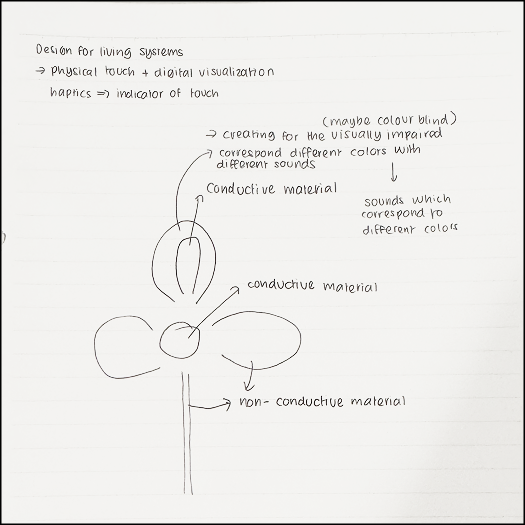 Design for living systems
→ physical touch + digital visualization
haptics => indicator of touch
(maybe colour blind)
→ creating for the visually impaired
→ correspond different colors with
different sounds
Conductive material
sounds which
correspond to
different colors
conductive material
non-conductive material